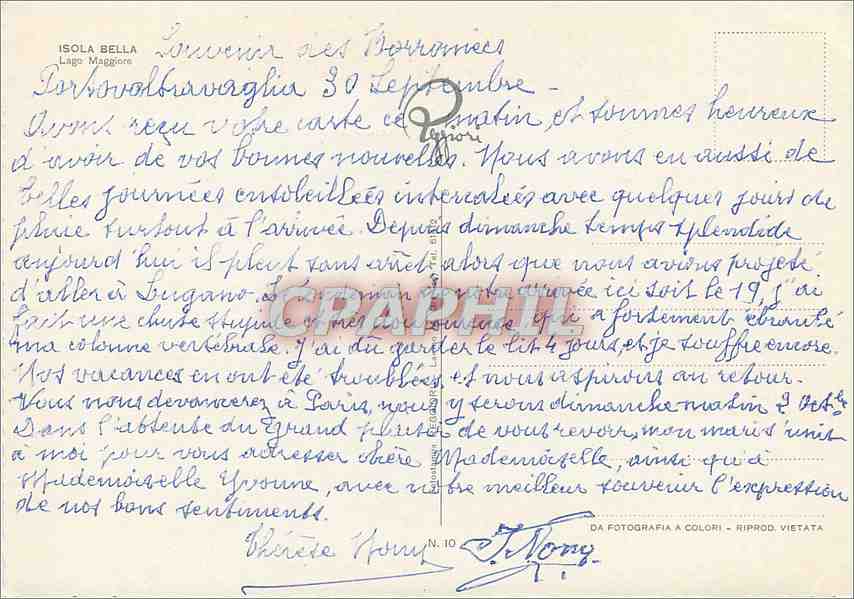 ISOLA BELLA
Lago Maggiore
Souvenir des Borromées
Portovaltravaglia 30 Septembre -
Avons reçu votre carte ce matin, et sommes heureux
d'avoir de vos bonnes nouvelles. Nous avons eu aussi de
belles journées ensoleillées intercalées avec quelques jours de
pluie surtout à l'arrivée. Depuis dimanche temps splendide
aujourd'hui il pleut sans arrêt alors que nous avions projeté
d'aller à Lugano. Le lendemain de notre arrivée ici soit le 19, j'ai
fait une chute stupide et très douloureuse qui a fortement ébranlé
ma colonne vertébrale. J'ai dû garder le lit 4 jours, et je souffre encore.
Nos vacances en ont été troublées, et nous aspirons au retour.
Vous nous devancerez à Paris, nous y serons dimanche matin 9 Octbre
Dans l'attente du grand plaisir de vous revoir, mon mari s'unit
à moi pour vous adresser chère Mademoiselle, ainsi qu'à
Mademoiselle Yvonne, avec notre meilleur souvenir l'expression
de nos bons sentiments.
Thérèse Nony
J. Nony
N. 10
DA FOTOGRAFIA A COLORI - RIPROD. VIETATA
CPAPHIL